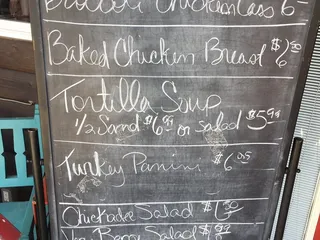 Broccoli Chicken Cass 6-
Baked Chicken Bread $2
Tortilla Soup
1/2 Sand $6.95 or Salad $5.95
Turkey Panini $6.05
Chickadee Salad
Berry Salad